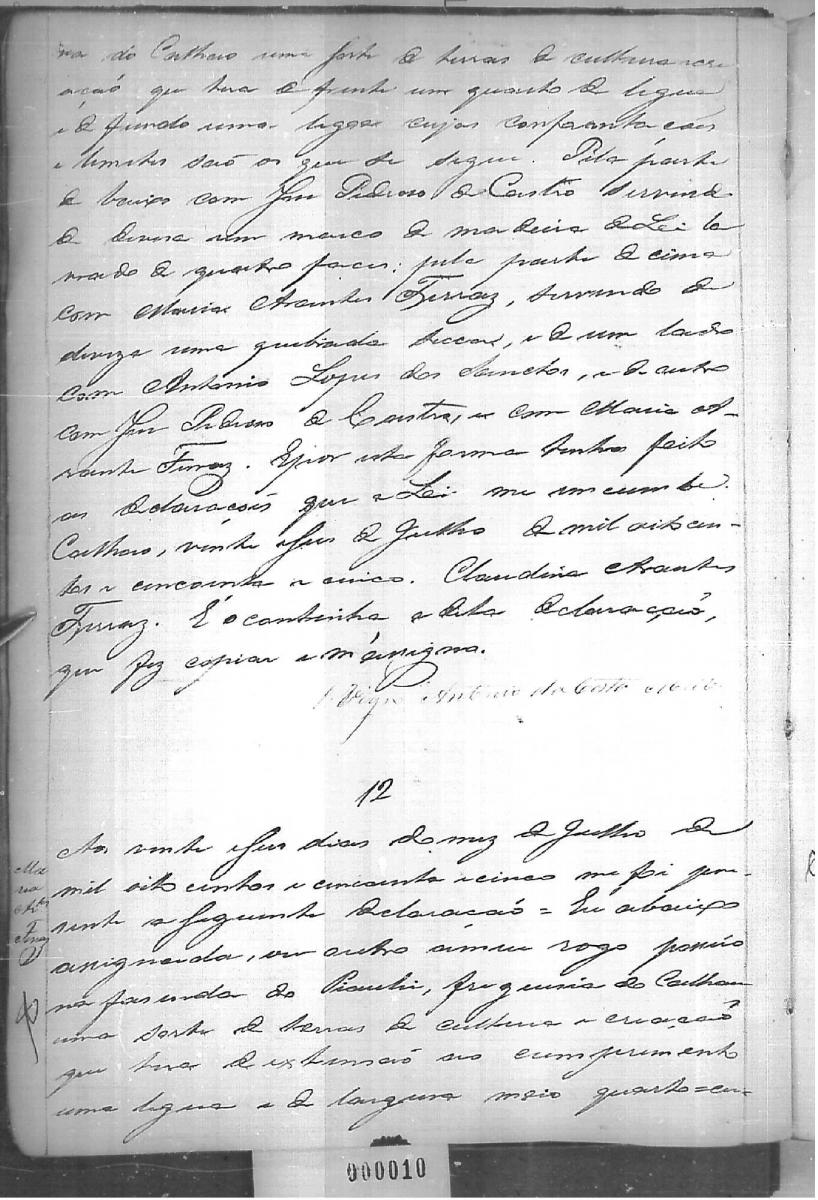 na do Calhao uma sorte de terras de cultura e cri
ação que tera de frente um quarto de legua
e de fundo uma legoa cujas confrontaçoes
e limites saõ os que se segue. Pela parte
de baixo com José Pedroso de Castro servindo
de devisa um marco de madeira de Lei la
vrado de quatro faces; pela parte de cima
com Maria Arantes Ferraz, servindo de
deviza uma quebrada secca, e de um lado
com Antonio Lopes dos Sanctos, e de outro
com José Pedroso de Castro, e com Maria A-
rante Ferraz. E por esta forma tenho feito
as declaraçoes que a Lei me incumbe.
Calhao, vinte e seis de Julho de mil oitocen-
tos e cincoenta e cinco. Claudina Arantes
Ferraz. É o continha a dita declaração,
que fiz copiar e m'assigno.
Antonio da Costa
12
Aos vinte e seis dias do mez de Julho de
mil oito centos e cincoenta e cinco me foi pre-
sente a seguinte declaracaõ = Eu abaixo
assignada, ou outro a meu rogo possuo
na fasenda do Piauhi, freguesia do Calhau
uma sorte de terras de cultura e criaçaõ
que tera de extensaõ ao cumprimento
uma legua e de largura meio quarto = cu-
Ma
ria
Ar.tes
Ferraz
000010